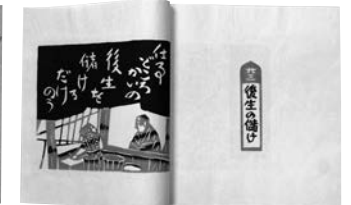 後生の儲け
どころ
かいの
後生を
儲け
る
だけ
のう